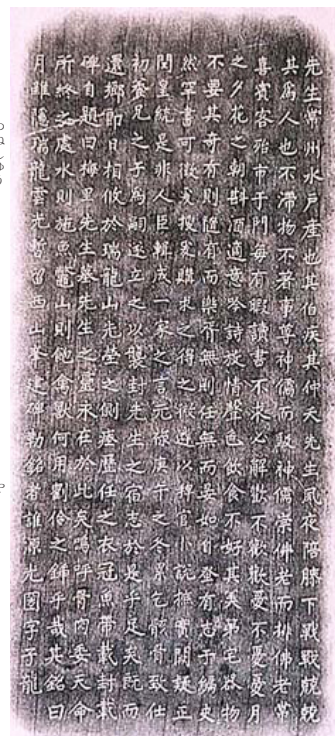 先生常州水戸産也其伯疾其仲夭先生夙夜陪膝下戰戰兢兢
其爲人也不滯物不著事尊神儒而駁神儒崇佛老而排佛老常
喜賓客殆市于門毎有暇讀書不求必解歡不歡歡憂不憂憂月
之夕花之朝斟酒適意吟詩放情聲色飲食不好其美第宅器物
不要其奇有則隨有而樂胥無則任無而晏如自蚤有志于編史
然罕書可徴爰搜爰購求之得之微遴以稗官小説摭實闕疑正
閏皇統是非人臣輯成一家之言元祿庚午之冬累乞骸骨致仕
初養兄之子爲嗣遂立之以襲封先生之宿志於是乎足矣既而
還鄕即日相攸於瑞龍山先塋之側瘞歷任之衣冠魚帶載封載
碑自題曰梅里先生墓先生之靈永在於此矣嗚呼骨肉委天命
所終之處水則施魚鼈山則飽禽獸何用劉伶之鍤乎哉其銘曰
月雖隱瑞龍雲光暫留西山峯建碑勒銘者誰源光圀字子龍